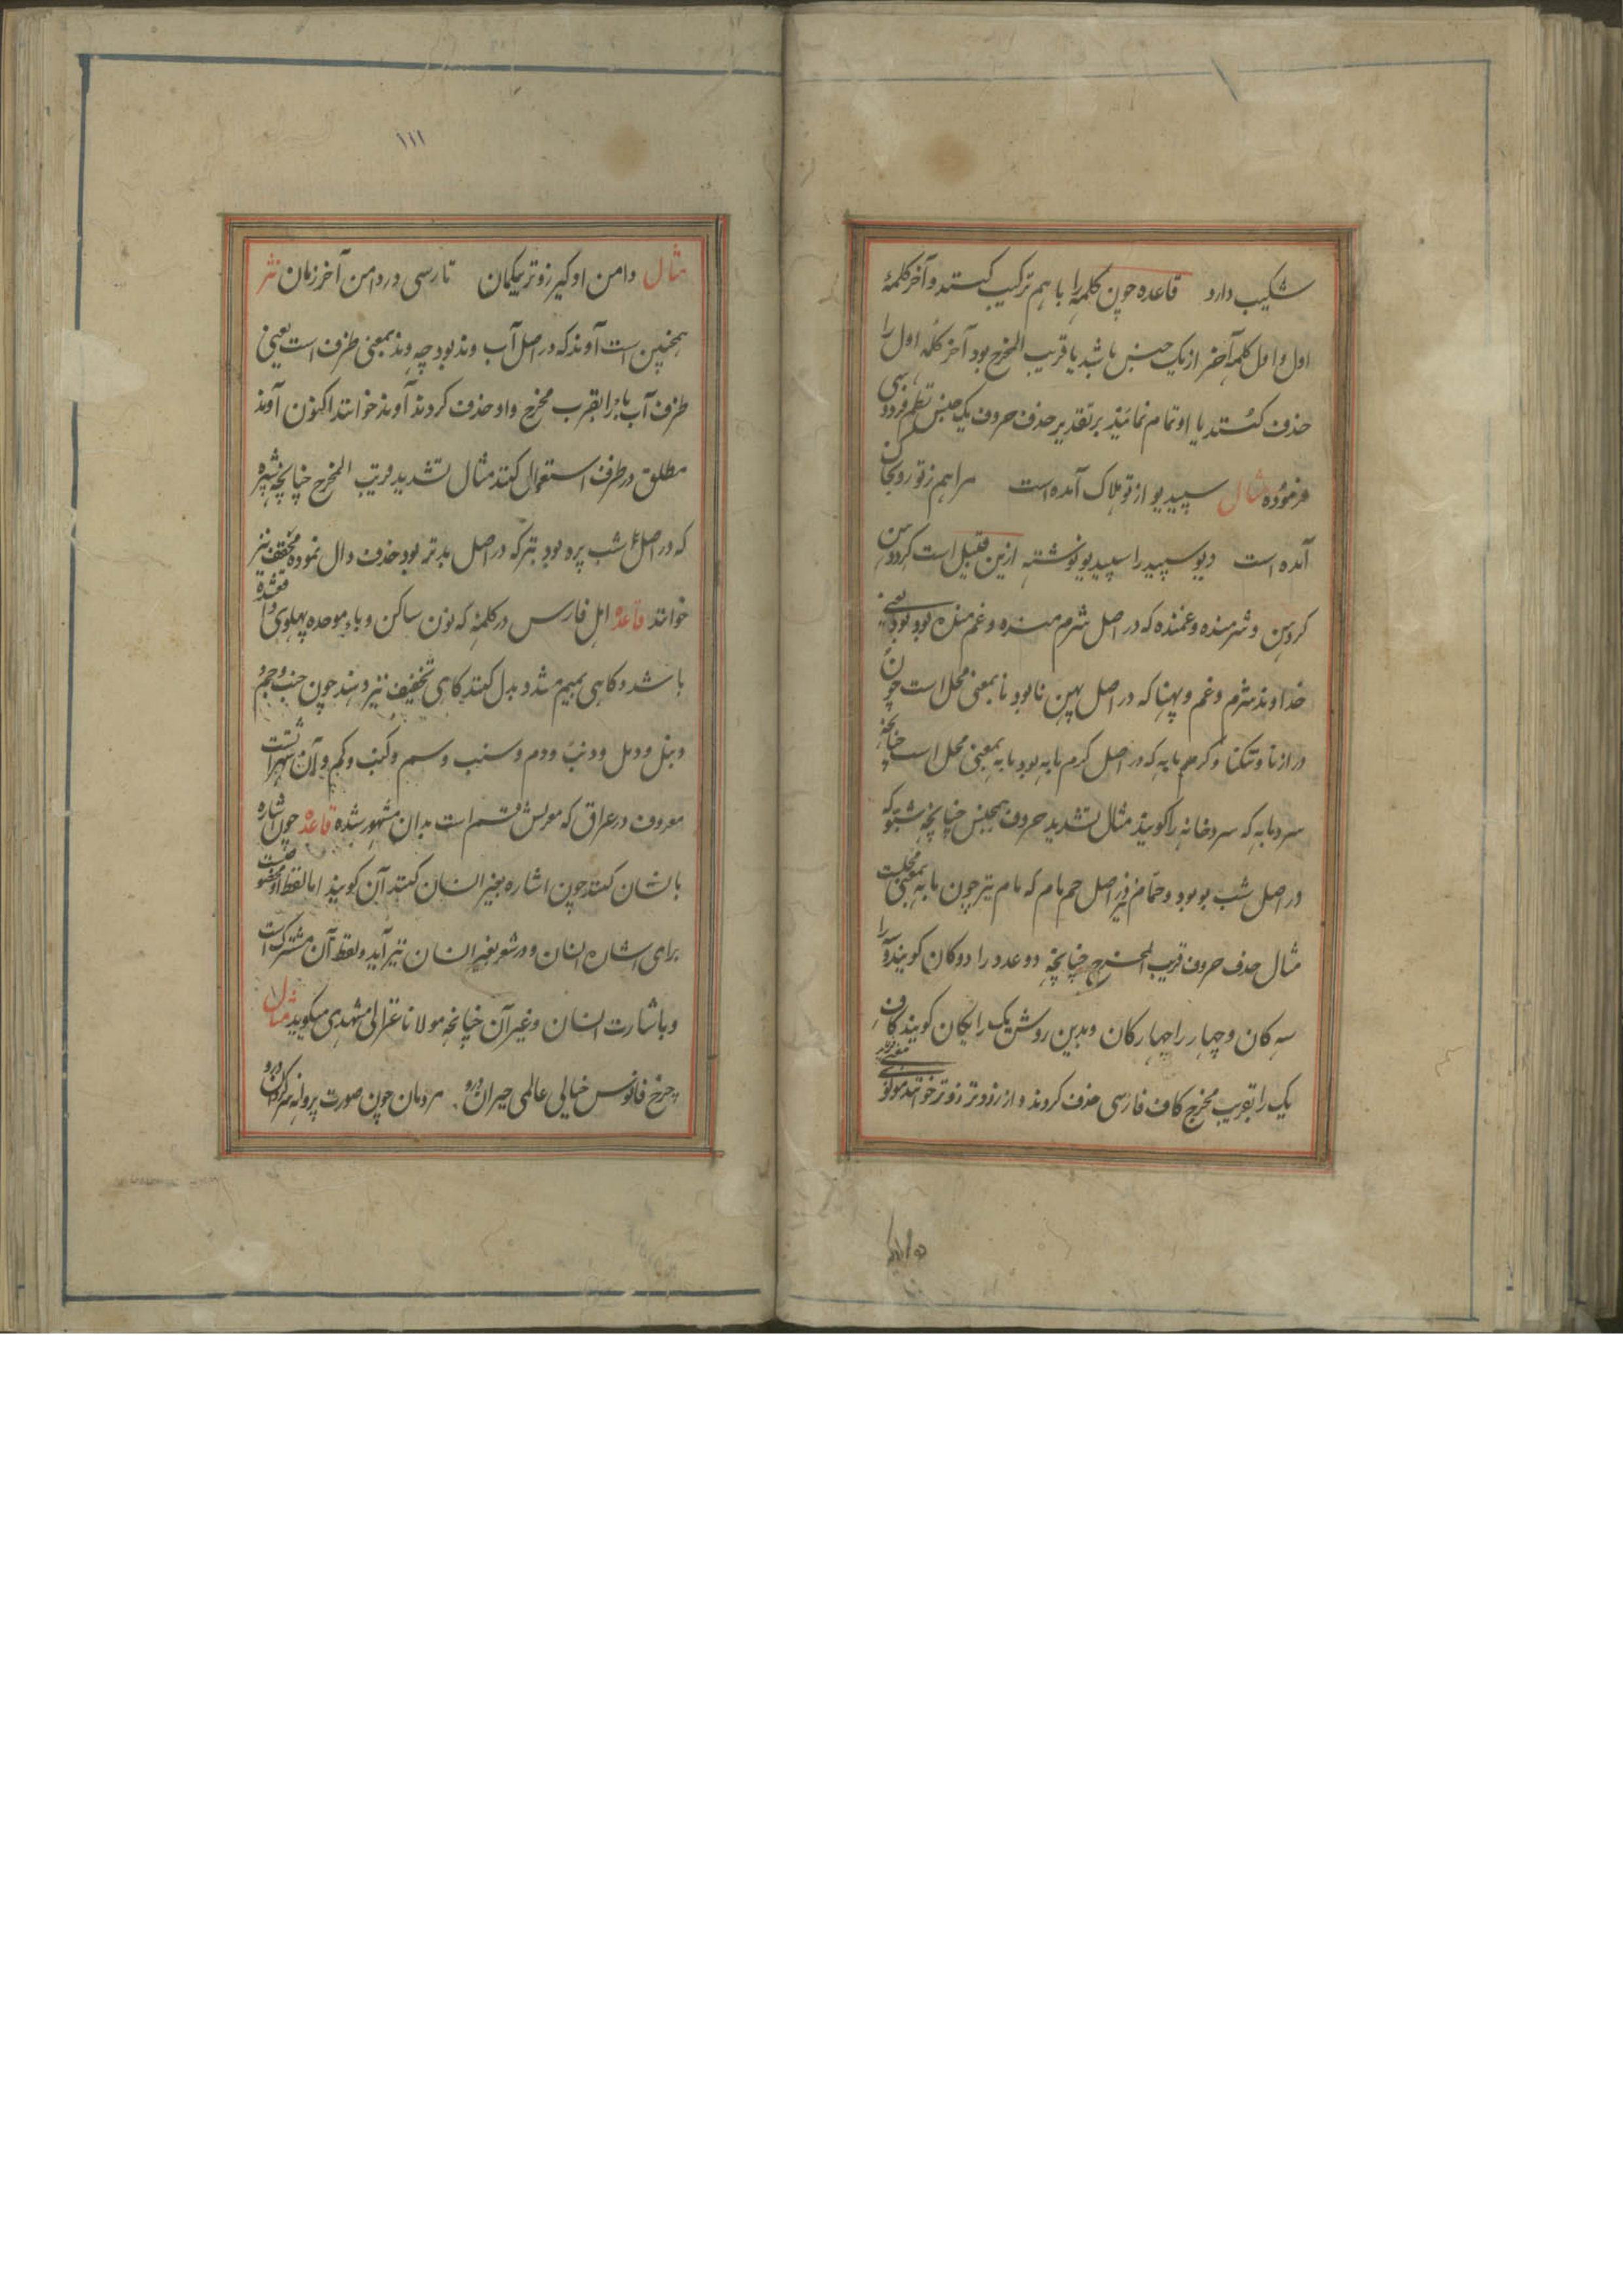 شکیب دارد قاعده چون کلمهٔ را با هم ترکیب کنند و آخر کلمهٔ
اول و اول کلمهٔ آخر از یک جنس باشد یا قریب المخرج بود آخر کلمه اول را
حذف کنند یا ادغام نمایند بر تقدیر حذف حروف یک جنس نظم فردوسی
فرموده مثال سپیدیو از تو هلاک آمده است مرا هم ز تو رو بجان
آمده است دیو سپید را سپیدیو نوشته ازین قبیل است کردهن
کردهن و شرمنده و غمنده که در اصل شرم منده و غم منده بود یعنی
خداوند شرم و غم و پهنا که در اصل پهن نا بود نا بمعنی محل است چون
درازنا و تنکنا و کرمابه که در اصل کرم مابه بود مابه بمعنی محل است چنانچه
سردابه که سردخانه را کویند مثال تشدید حروف همجنس چنانچه شبو که
در اصل شب بو بود و حمام نیز در اصل حم مام که مام نیز چون مابه بمعنی محلست
مثال حذف حروف قریب المخرج چنانچه دو عدد را دوکان کویند و
سه کان و چهار را چهارکان و بدین روش یک را یکان کویند کاف
یک را بقرب مخرج کاف فارسی حذف کردند و از زودتر زوتر خوانند مولوی معنوی
هدایه
۱۱۱
مثال دامن او کیر زوتر بیکمان تا رسی در دامن آخر زمان نثر
همچنین است آوند که در اصل آب وند بود چه وند بمعنی ظرف است یعنی
ظرف آب باء را بقرب مخرج واو حذف کردند آوند خوانند اکنون آوند
مطلق در ظرف استعمال کنند مثال تشدید قریب المخرج چنانچه شپره
که در اصل شب پره بود بتر که در اصل بدتر بود حذف دال نموده مخفف نیز
خوانند قاعده اهل فارس در کلمهٔ که نون ساکن و باء موحده پهلوی واقع شده
باشد و کاهی بمیم مشدد بدل کنند کاهی تخفیف نیز دهند چون خنب و خم
دنبل و دمل و دنب و دم و سنب و سم و کنب و کم و آن شهریست
معروف در عراق که معربش قم است بدان مشهور شده قاعده چون اشاره
بانسان کنند چون اشاره بغیر انسان کنند آن کویند اما لفظ او مخصوصست
برای اشاره انسان و در شعر بغیر انسان نیز آید و لفظ آن مشترکست
و باشارت انسان و غیر آن چنانچه مولانا غزالی مشهدی میکوید مثال
چرخ فانوس خیالی عالمی حیران درو مردمان چون صورت پروانه سرکردان درو